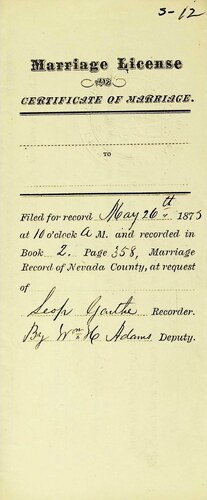 3-12
Marriage License
AND
CERTIFICATE OF MARRIAGE.
TO
Filed for record May 26th 1873
at 10 o'clock A M. and recorded in
Book 2. Page 358, Marriage
Record of Nevada County, at request
of
Recorder.
By Wm H Adams Deputy.